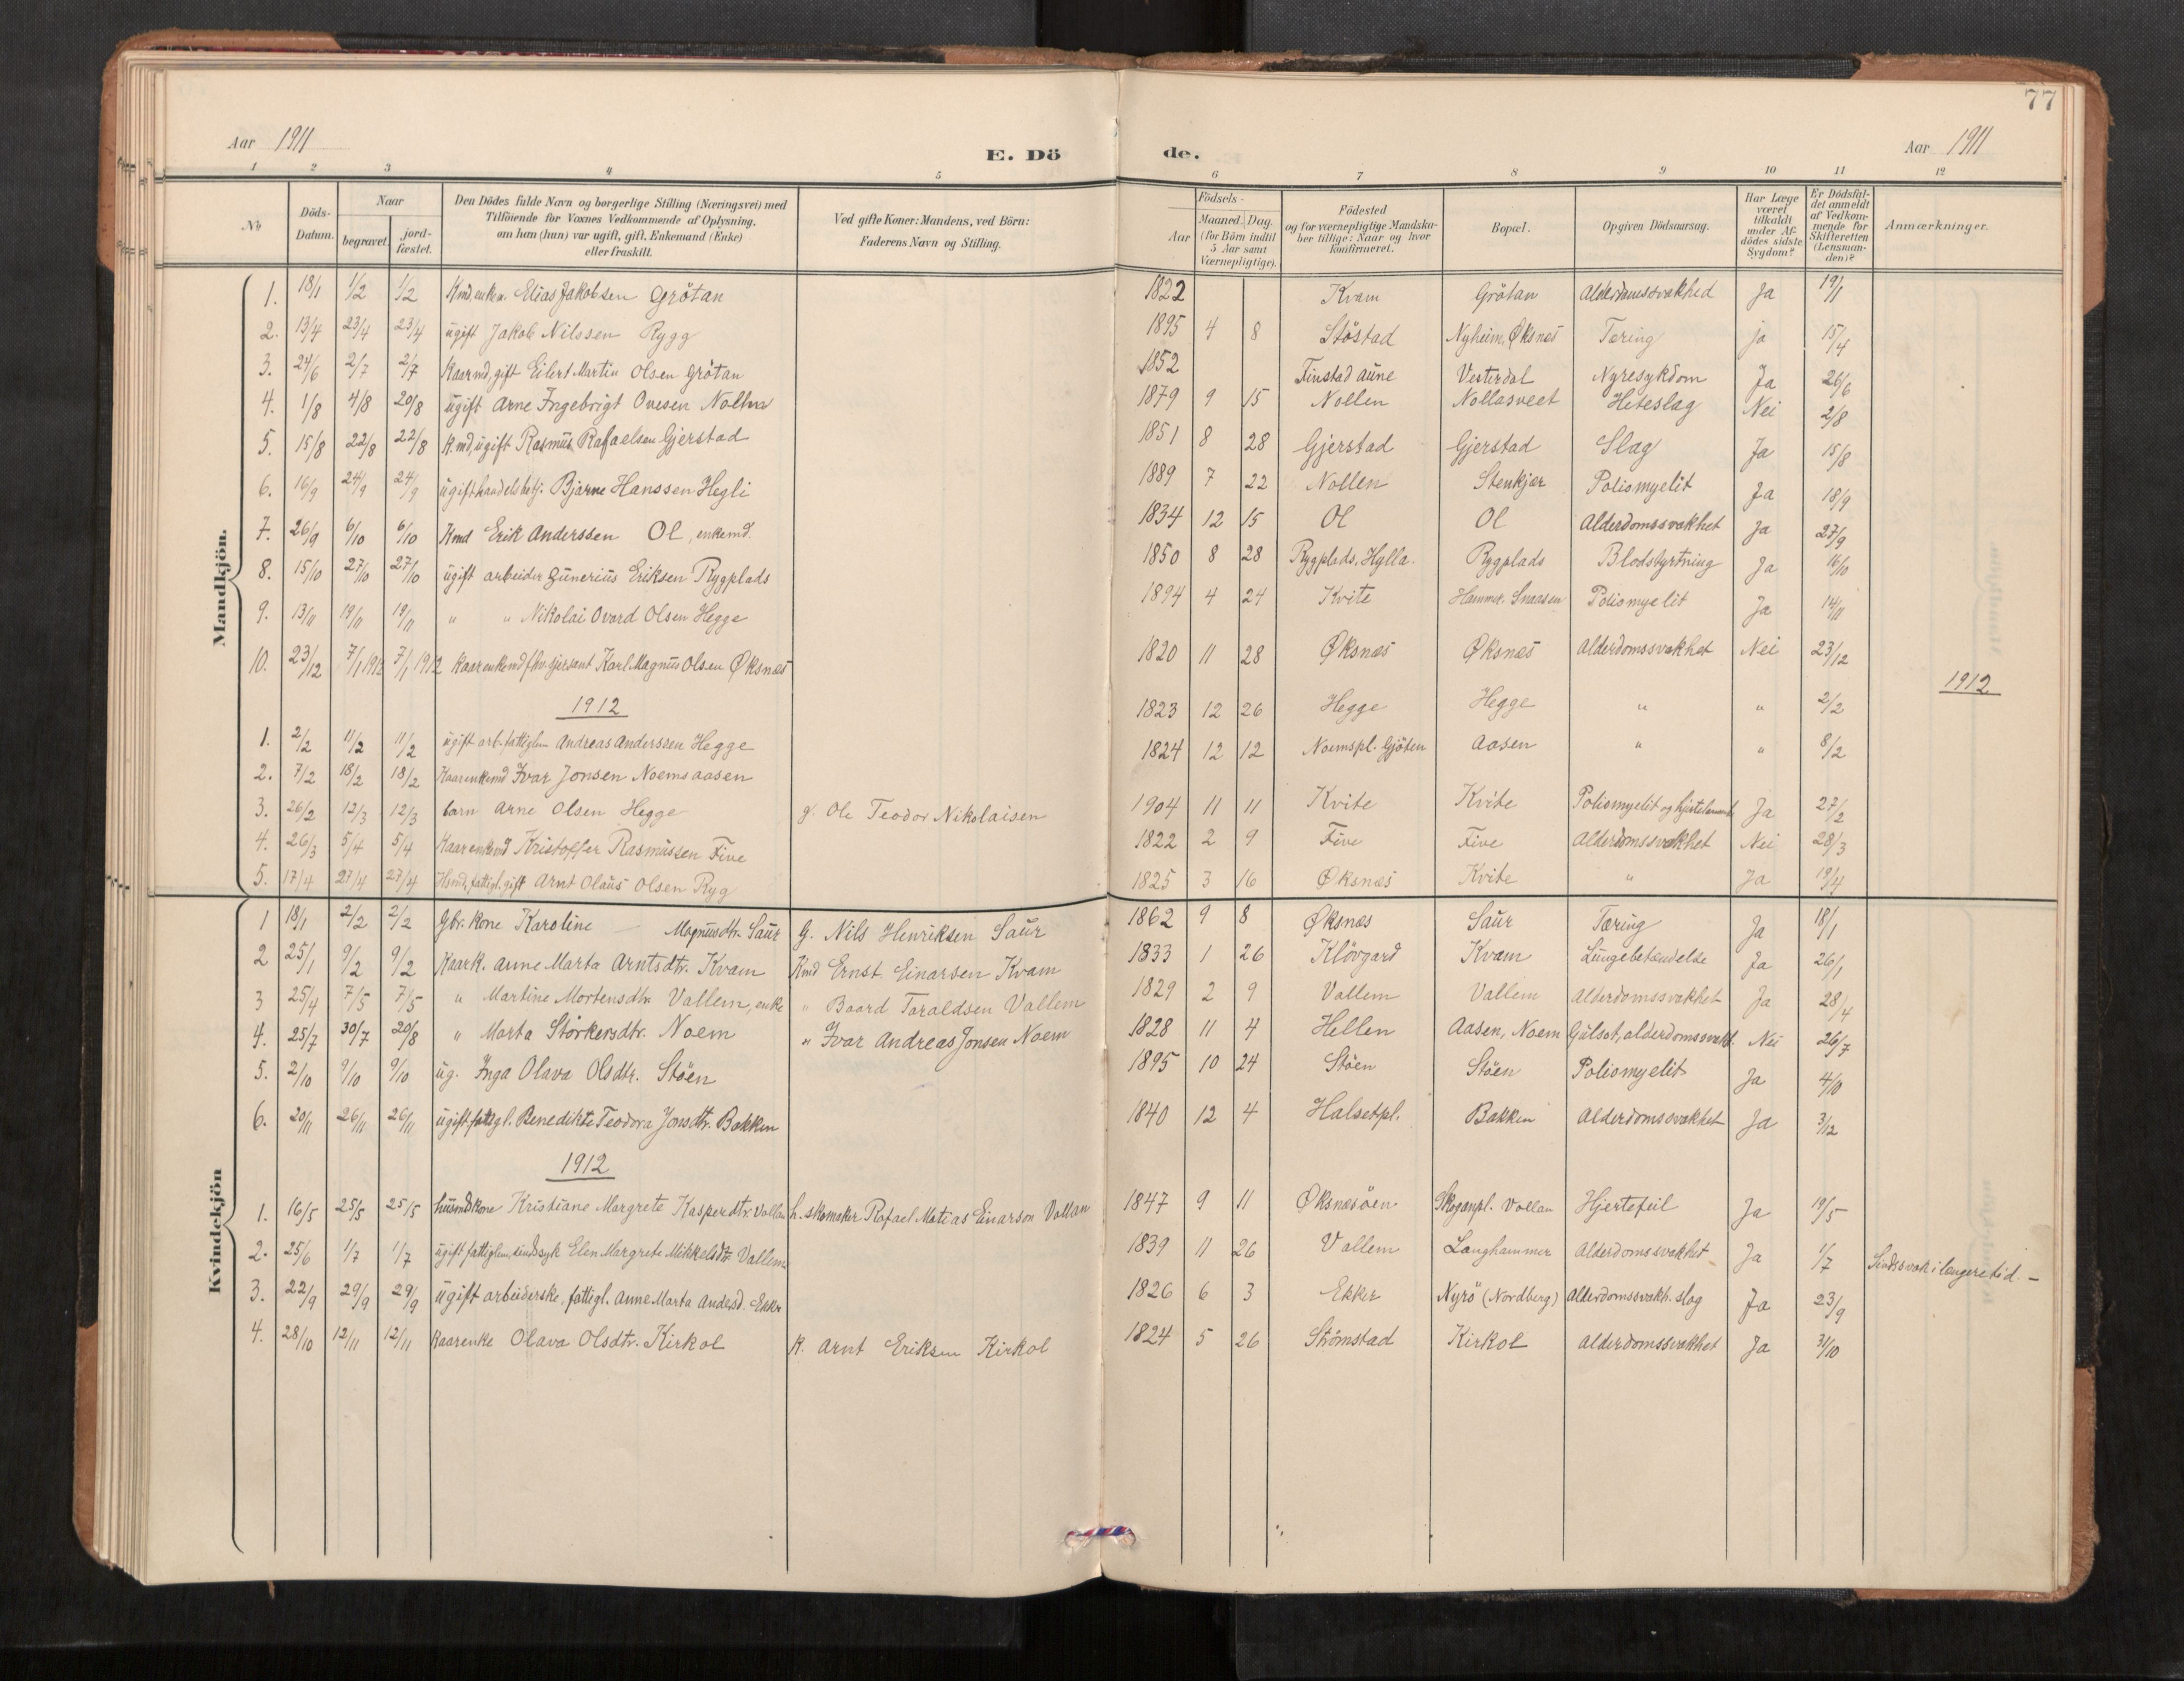 77
Aar 1911 E. Dö de. Aar 1911
1 2 3 4 5 6 7 8 9 10 11 12
Nr. Döds-Datum. Naar begravet. jord-fæstet. Den Dödes fulde Navn og borgerlige Stilling (Næringsvei) med Tilföiende for Voxnes Vedkommende af Oplysning, om han (hun) var ugift, gift, Enkemand (Enke) eller fraskilt. Ved gifte Koner: Mandens, ved Börn: Faderens Navn og Stilling. Födsels- Aar Maaned. Dag. (for Börn indtil 5 Aar samt Værnepligtige). Födested og for værnepligtige Mandskaber tillige: Naar og hvor konfirmeret. Bopæl. Opgiven Dödsaarsag. Har Læge været tilkaldt under Afdödes sidste Sygdom? Er Dödsfaldet anmeldt af Vedkommende for Skifteretten (Lensmanden)? Anmærkninger.
Mandkjön.
1. 18/1 1/2 1/2 Kmd. enkem. Elias Jakobsen Grötan 1822 Kvam Grötan Alderdomssvakhed Ja 19/1
2. 13/4 23/4 23/4 ugift Jakob Nilssen Rygg 1895 4 8 Stöstad Nyheim, Øksnæs Tæring ja 15/4
3. 24/6 2/7 2/7 Kaarmd, gift Eilert Martin Olsen Grötan 1852 Finstad aune Vesterdal Nyresykdom Ja 26/6
4. 1/8 4/8 20/8 ugift Arne Ingebrigt Ovesen 1879 9 15 Nollen Heteslag Nei 2/8
5. 15/8 22/8 22/8 K.md, ugift Rasmus Rafaelsen Gjerstad 1851 8 28 Gjerstad Gjerstad Slag Ja 15/8
6. 16/9 24/9 24/9 ugift handelsbetj. Bjarne Hanssen Hegli 1889 7 22 Nollen Stenkjær Poliomyelit Ja 18/9
7. 26/9 6/10 6/10 Kmd Erik Anderssen Ol, enkemd. 1834 12 15 Ol Ol Alderdomssvakhet Ja 27/9
8. 15/10 27/10 27/10 ugift arbeider Gunerius Eriksen Rygplads 1850 8 28 Rygplads, Hylla. Rygplads Blodstyrtning Ja 16/10
9. 13/11 19/11 19/11 " " Nikolai Ovard Olsen Hegge 1894 4 24 Kvite Hammer. Snaasen Poliomyelit Ja 14/11
10. 23/12 7/1 1912 7/1 1912 Kaarenkemd fhv. sjersant Karl Magnus Olsen Øksnæs 1820 11 28 Øksnæs Øksnæs Alderdomssvakhet Nei 23/12
1912 1912
1. 2/2 11/2 11/2 ugift arb. fattiglem Andreas Anderssen Hegge 1823 12 26 Hegge Hegge " " 2/2
2. 7/2 18/2 18/2 Kaarenkemd Ivar Jonsen Noemsaasen 1824 12 12 Noemspl. Gjöten Aasen " " 8/2
3. 26/2 12/3 12/3 barn Arne Olsen Hegge g. Ole Teodor Nikolaisen 1904 11 11 Kvite Kvite Poliomyelit og Ja 27/2
4. 26/3 5/4 5/4 Kaarenkemd Kristoffer Rasmussen Five 1822 2 9 Five Five Alderdomssvakhet Nei 28/3
5. 17/4 27/4 27/4 Hsmd, fattigl. gift Arnt Olaus Olsen Ryg 1825 3 16 Øksnæs Kvite " Ja 19/4
Kvindekjön
1 18/1 2/2 2/2 Gbr. kone Karoline — Magnusdtr. Saur G. Nils Henriksen Saur 1862 9 8 Øksnæs Saur Tæring Ja 18/1
2 25/1 9/2 9/2 Kaark. Anne Marta Arntsdtr. Kvam Kmd Ernst Einarsen Kvam 1833 1 26 Klövgard Kvam Lungebetændelse Ja 26/1
3 25/4 7/5 7/5 " Martine Mortensdtr. Vallem, enke " Baard Toraldsen Vallem 1829 2 9 Vallem Vallem Alderdomssvakhet Ja 28/4
4. 25/7 30/7 20/8 " Marta Störkersdtr. Noem " Ivar Andreas Jonsen Noem 1828 11 4 Hellen Aasen, Noem Gulsot, alderdomssvakh. Nei 26/7
5. 2/10 9/10 9/10 ug. Inga Olava Olsdtr. Stöen 1895 10 24 Stöen Stöen Poliomyelit Ja 4/10
6. 20/11 26/11 26/11 ugift fattigl. Benedikte Teodora Jonsdtr. Bakken 1840 12 4 Halsetpl. Bakken Alderdomssvakhet Ja 3/12
1912
1. 16/5 25/5 25/5 husmdkone Kristiane Margrete Kasperdtr. Vollan h. skomaker Rafael Matias Einarson Vollan 1847 9 11 Øksnæsöen Skeganpl. Vollan Hjertefeil Ja 19/5
2. 25/6 1/7 1/7 ugift fattiglem, sindssyk Elen Margrete Mikkelsdtr Vallem 1839 11 26 Vallem Langhammer Alderdomssvakhet Ja 1/7 Sindssvak i længere tid. —
3. 22/9 29/9 29/9 ugift arbeiderske, fattigl. Anne Marta Andersd. Ekker 1826 6 3 Ekker Nyrö (Nordberg) Alderdomssvakh. slag Ja 23/9
4. 28/10 12/11 12/11 Kaarenke Olava Olsdtr. Kirkol K. Arnt Eriksen Kirkol 1824 5 26 Strömstad Kirkol Alderdomssvakhet Ja 31/10